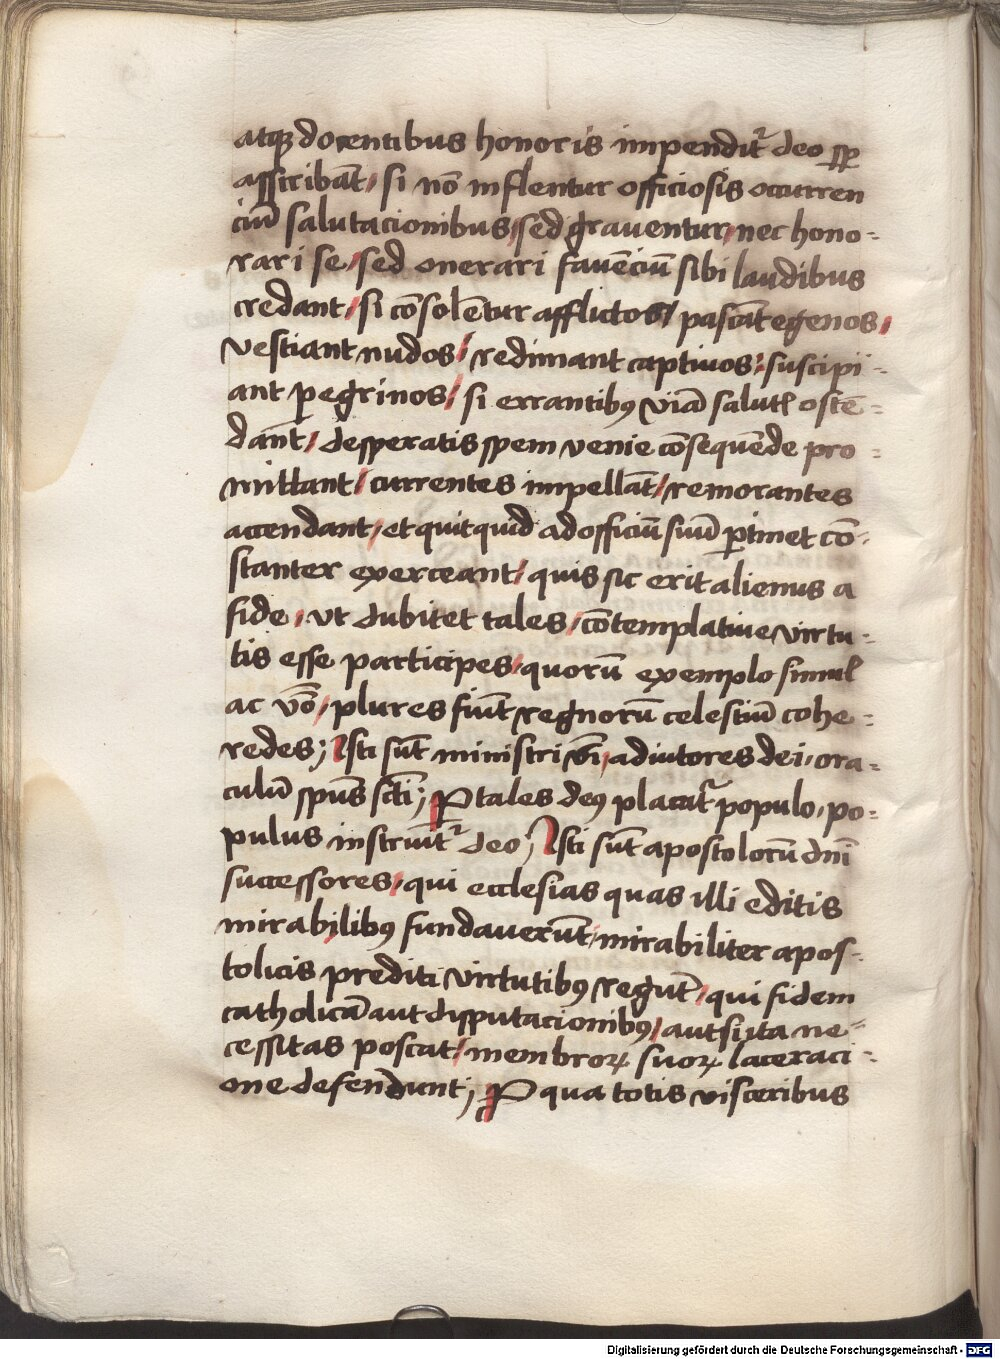 atqꝫ docentibus honoris impendit᷑ deo ꝓp
asscribāt / si nō inflentur officiosis occurren
ciū salutacionibus / sed grauentur / nec hono-
rari se / sed onerari fauēciū sibi laudibus
credant / si cōsolētur afflictos / pascāt egenos /
vestiant nudos / redimant captiuos / suscipi-
ant ꝑegrinos / si errantibꝰ viā salutꝭ ostē-
dant / desperatis spem venie cōsequēde pro-
mittant / currentes impellāt / remorantes
accendant / et quitquid ad officiū suū ꝑtinet cō-
stanter exerceant / quis sic erit alienus a
fide / vt dubitet tales / cōtemplatiue virtu-
tis esse participes / quorū exemplo simul
ac vͦo / plures fiūt regnorū celestiū cohe-
redes ; Isti sūt ministri v̄i / adiutores dei / ora-
culū spūs sctī ; Ꝑ tales deꝰ placat᷑ populo / po-
pulus instruit᷑ deo ; Isti sūt apostolorū dn̄i
successores / qui ecclesias quas illi editis
mirabilibꝰ fundauerūt / mirabiliter apos-
tolicis prediti virtutibꝰ regūt / qui fidem
catholicā aut disputacionibꝰ / aut si ita ne-
cessitas poscat / membroꝝ suoꝝ laceraci-
one defendunt ; Ꝑ qua totis visceribus
Digitalisierung gefördert durch die Deutsche Forschungsgemeinschaft - DFG